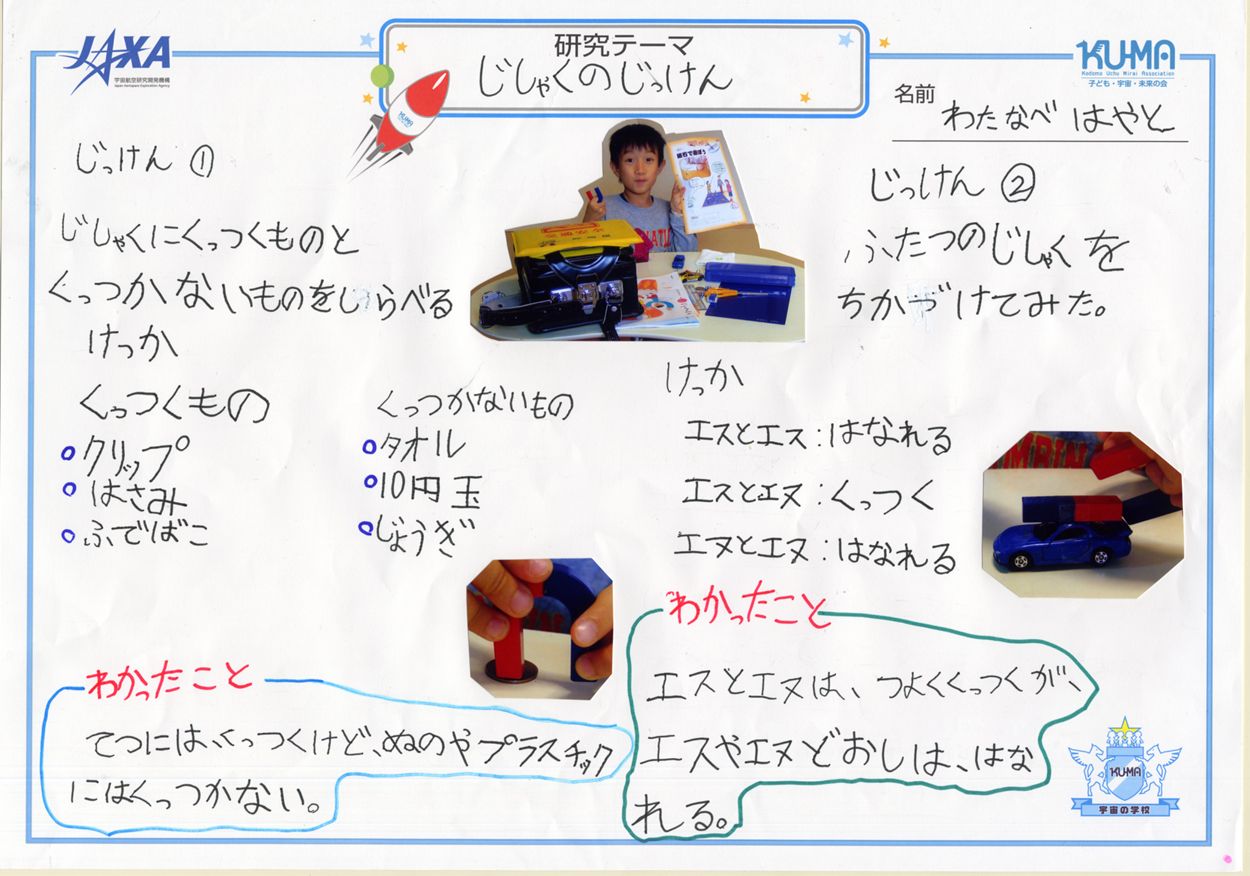 JAXA
宇宙航空研究開発機構
Japan Aerospace Exploration Agency
研究テーマ
じしゃくのじっけん
KUMA
Kodomo Uchu Mirai Association
子ども・宇宙・未来の会
名前
わたなべ はやと
KUMA
じっけん ①
じしゃくにくっつくものと
くっつかないものをしらべる
けっか
くっつくもの
クリップ
はさみ
ふでばこ
くっつかないもの
タオル
10円玉
じょうぎ
わかったこと
てつには、くっつくけど、ぬのやプラスチック
にはくっつかない。
じっけん ②
ふたつのじしゃくを
ちかづけてみた。
けっか
エスとエス:はなれる
エスとエヌ:くっつく
エヌとエヌ:はなれる
わかったこと
エスとエヌは、つよくくっつくが、
エスやエヌどおしは、はな
れる。
KUMA
宇宙の学校